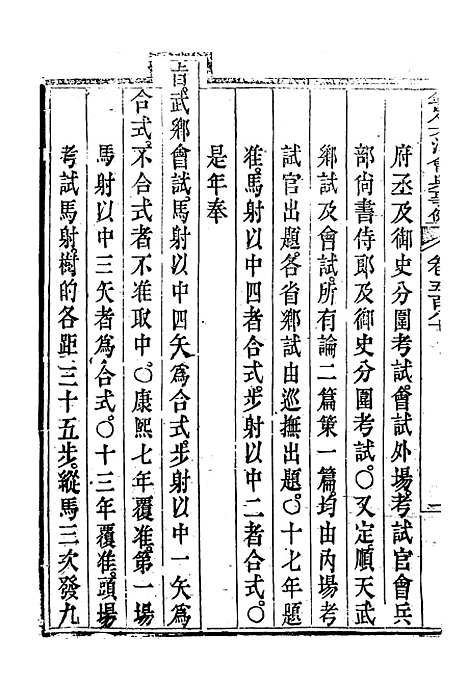 欽定大清會典事例 卷五百八十
府丞及御史分圍考試會試外場考試官會兵
部尚書侍郎及御史分圍考試〇又定順天武
鄉試及會試所有論二篇策一篇均由內場考
試官出題各省鄉試由巡撫出題〇十七年題
准馬射以中四者合式步射以中二者合式〇
是年奉
旨武鄉會試馬射以中四矢爲合式步射以中一矢爲
合式不合式者不准取中〇康熙七年覆准第一場
馬射以中三矢者爲合式〇十三年覆准頭場
考試馬射樹的各距三十五步縱馬三次發九